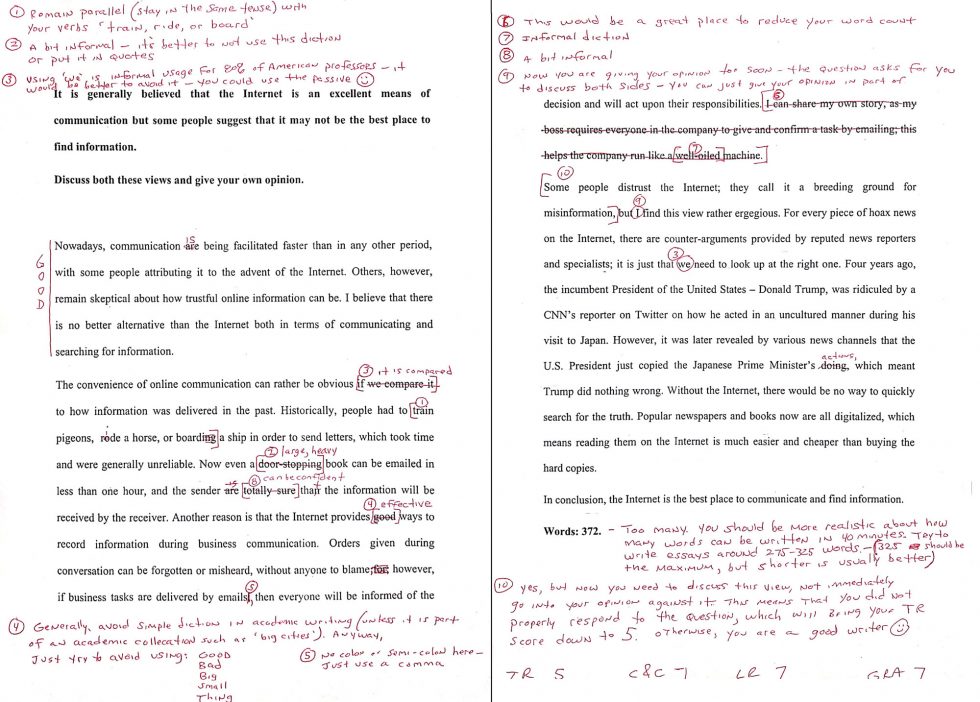 ① Remain parallel (stay in the same tense) with
your verbs 'train, ride, or board'
② A bit informal – it's better to not use this diction
or put it in quotes
③ Using 'we' is informal usage for 80% of American professors – it
would be better to avoid it – you could use the passive ☺
It is generally believed that the Internet is an excellent means of
communication but some people suggest that it may not be the best place to
find information.
Discuss both these views and give your own opinion.
is
Nowadays, communication are being facilitated faster than in any other period,
with some people attributing it to the advent of the Internet. Others, however,
remain skeptical about how trustful online information can be. I believe that there
is no better alternative than the Internet both in terms of communicating and
searching for information.
GOOD
③ it is compared
The convenience of online communication can rather be obvious [if we compare it]
①
to how information was delivered in the past. Historically, people had to [train
i
pigeons, rode a horse, or boarding] a ship in order to send letters, which took time
② large, heavy
and were generally unreliable. Now even a [door-stopping] book can be emailed in
is ⑧ can be confident
less than one hour, and the sender are [totally sure] that the information will be
④ effective
received by the receiver. Another reason is that the Internet provides [good] ways to
record information during business communication. Orders given during
conversation can be forgotten or misheard, without anyone to blame; for, however,
⑤
if business tasks are delivered by emails, then everyone will be informed of the
④ Generally, avoid simple diction in academic writing (unless it is part
of an academic collocation such as 'big cities'). Anyway,
Just try to avoid using: GOOD
Bad
Big
Small
Thing
⑤ No colon or semi-colon here –
Just use a comma
⑥ This would be a great place to reduce your word count
⑦ Informal diction
⑧ A bit informal
⑨ Now you are giving your opinion too soon – the question asks for you
to discuss both sides – you can just give your opinion in part of
decision and will act upon their responsibilities. [I can share my own story, as my
⑥
boss requires everyone in the company to give and confirm a task by emailing; this
⑦
helps the company run like a [well-oiled] machine.]
⑩
[Some people distrust the Internet; they call it a breeding ground for
⑨
misinformation,] but I find this view rather ergegious. For every piece of hoax news
on the Internet, there are counter-arguments provided by reputed news reporters
③
and specialists; it is just that we need to look up at the right one. Four years ago,
the incumbent President of the United States – Donald Trump, was ridiculed by a
CNN's reporter on Twitter on how he acted in an uncultured manner during his
visit to Japan. However, it was later revealed by various news channels that the
actions,
U.S. President just copied the Japanese Prime Minister's doing, which meant
Trump did nothing wrong. Without the Internet, there would be no way to quickly
search for the truth. Popular newspapers and books now are all digitalized, which
means reading them on the Internet is much easier and cheaper than buying the
hard copies.
In conclusion, the Internet is the best place to communicate and find information.
Words: 372. – Too many. You should be more realistic about how
many words can be written in 40 minutes. Try to
write essays around 275-325 words. – (325 should be
the maximum, but shorter is usually better)
⑩ Yes, but now you need to discuss this view, not immediately
go into your opinion against it. This means that you did not
properly respond to the question, which will bring your TR
score down to 5. Otherwise, you are a good writer ☺
TR 5 C&C 7 LR 7 GRA 7